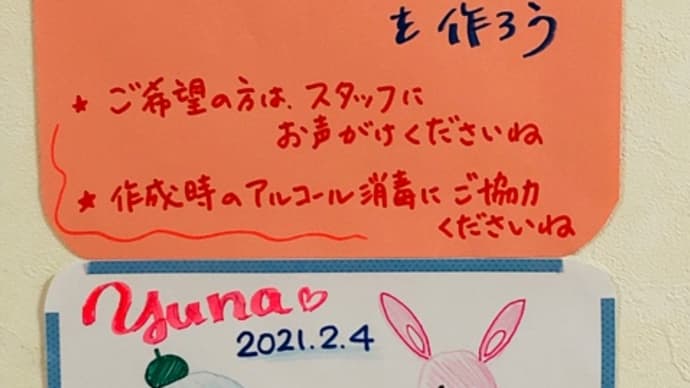 を作ろう
★ ご希望の方は、スタッフに
お声がけくださいね
★ 作成時のアルコール消毒にご協力
くださいね
yuna♡
2021.2.4